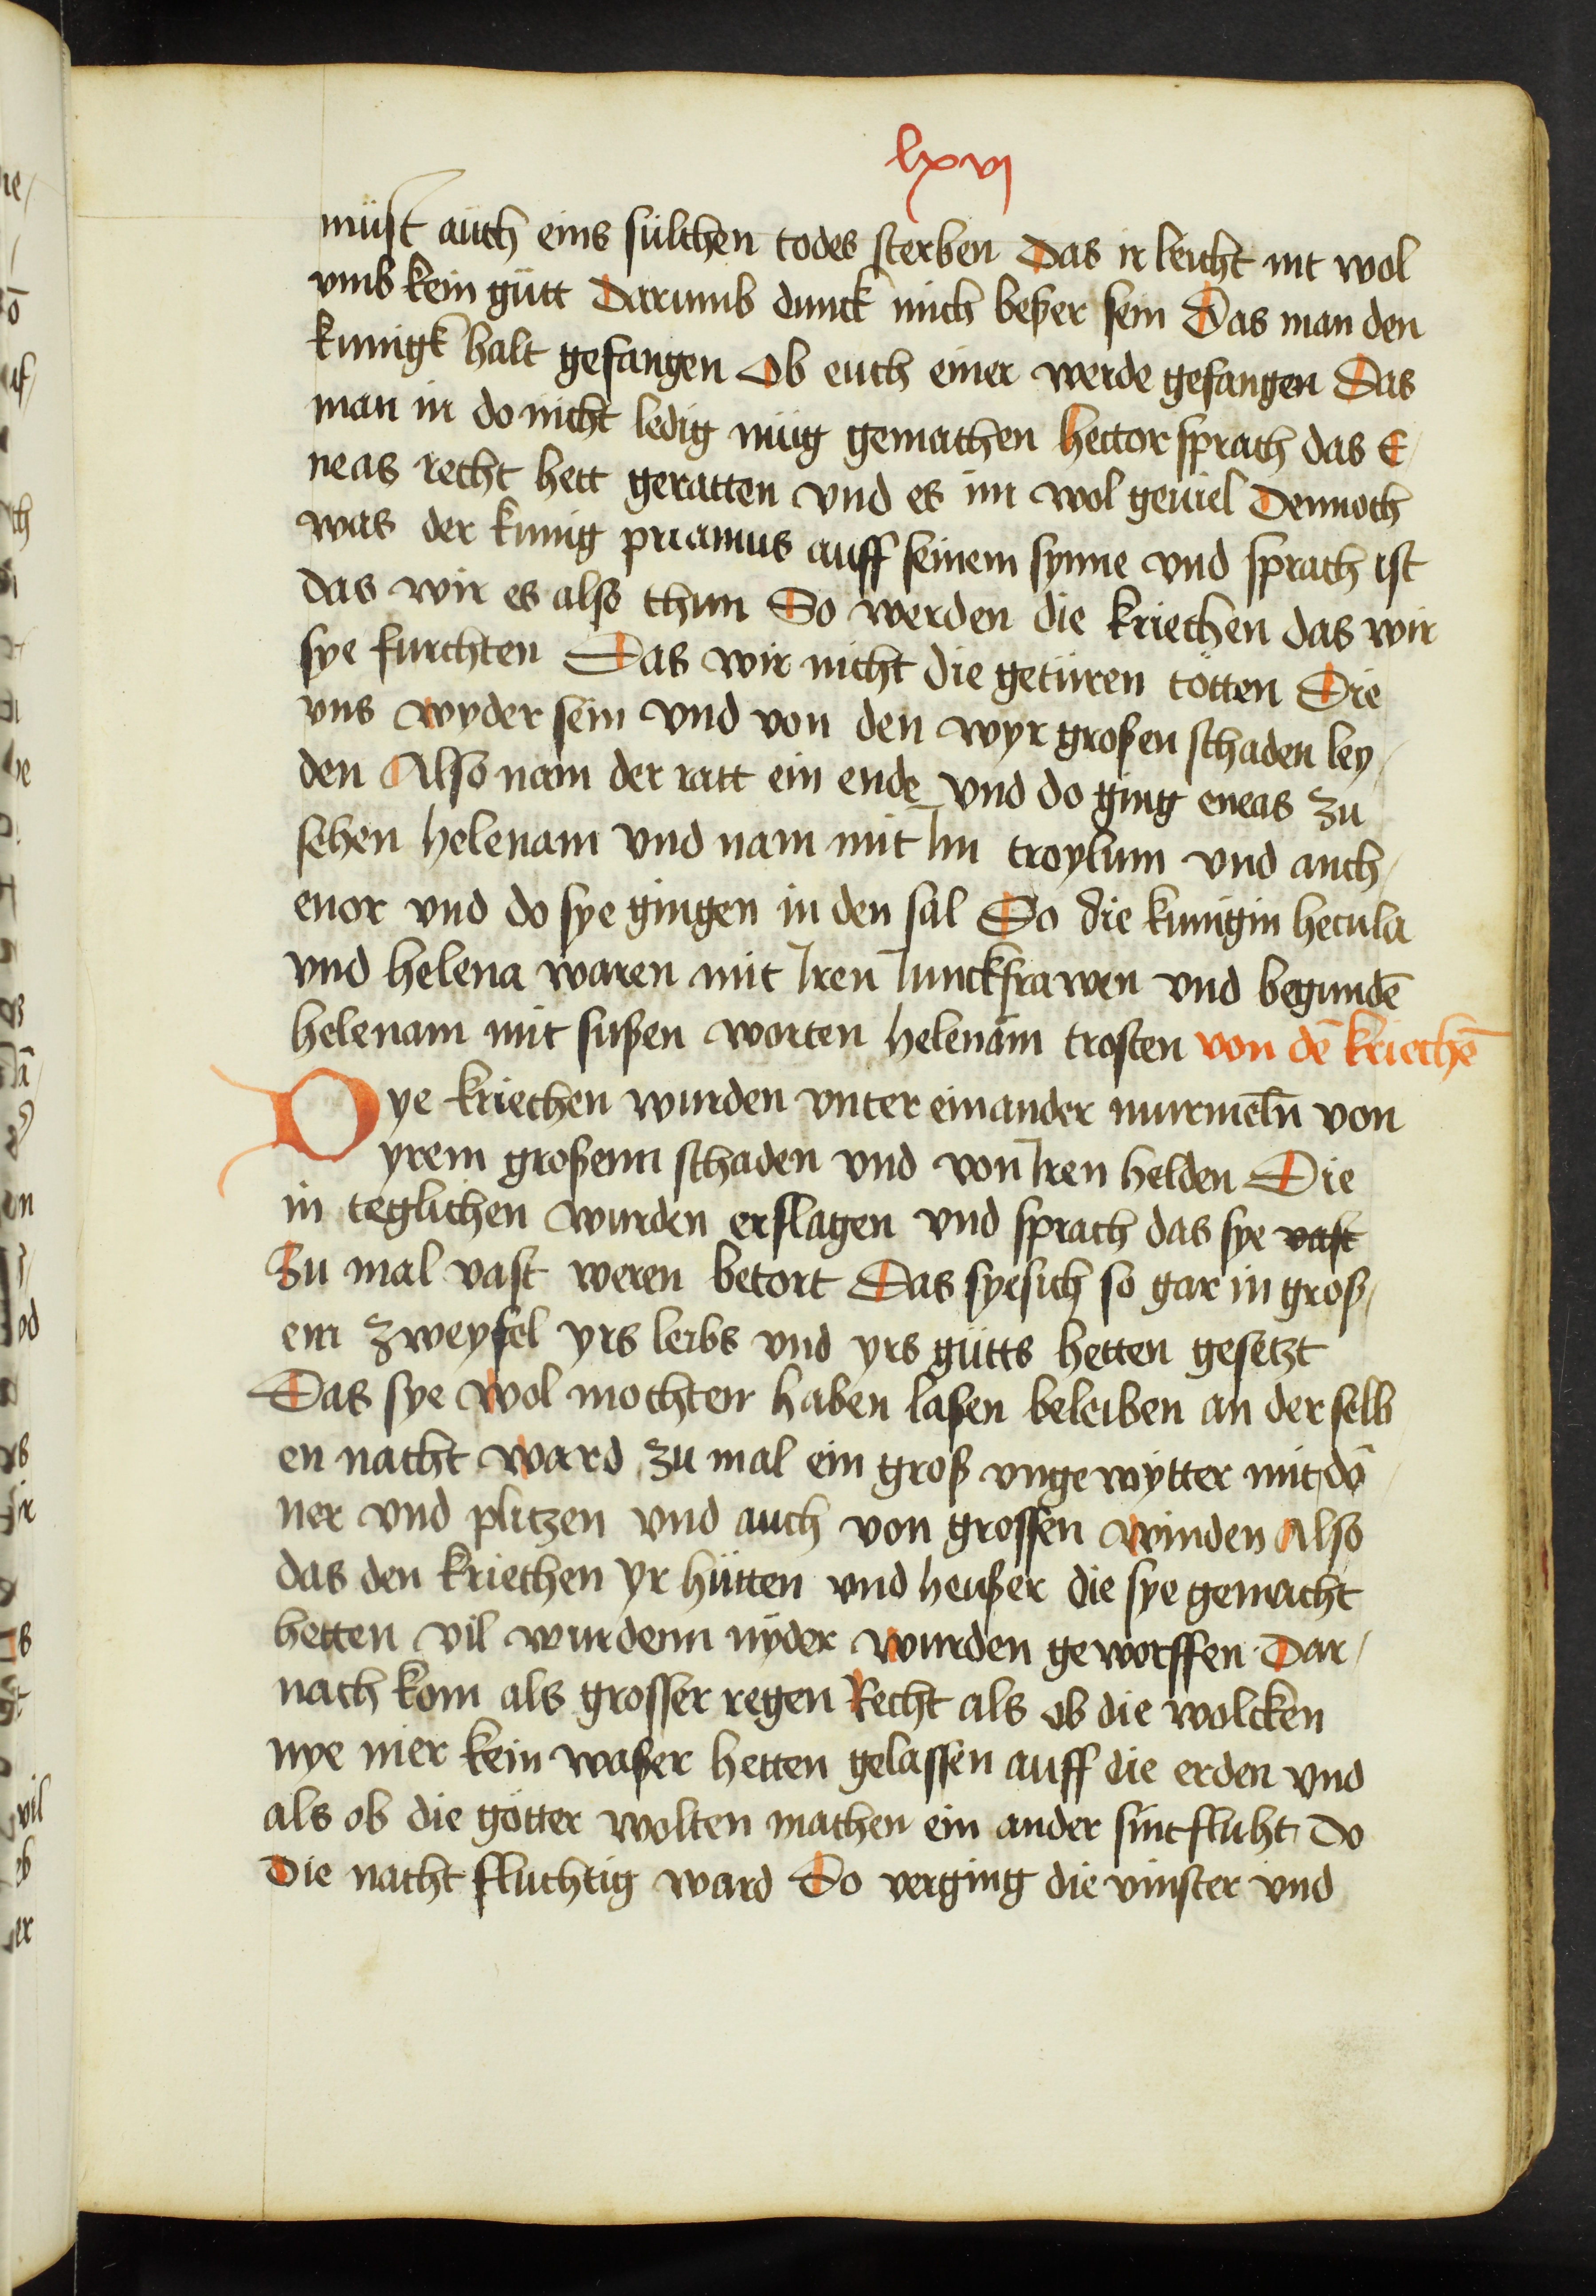 lxvj
müst auch eins sülchen todes sterben Das ir leicht nit wol
vmb kein gütt Darumb dunck mich beßer sein Das man den
kunigk halt gefangen Ob euch einer werde gefangen Das
man in do nicht ledig müg gemachen hector sprach das E/
neas recht hett geratten vnd es im wol geuiel Dennoch
was der kunig priamus auff seinem synne vnd sprach ist
das wir es also thun So werden die kriechen das wir
sye furchten Das wir nicht die getüren tötten Die
vns wyder sein vnd von den wyr großen schaden ley/
den Also nam der ratt ein ende vnd do ging eneas zu
sehen helenam vnd nam mit Im troylum vnd anth/
enor vnd do sye gingen in den sal Do die kunigin hecula
vnd helena waren mit Iren Iunckfrawen vnd begundē
helenam mit sußen worten helenam trosten von dē kriechē
Dye kriechen wurden vnter einander murmeln̄ von
yrem großenn schaden vnd von Iren helden Die
in teglichen wurden erslagen vnd sprach das sye vast
zu mal vast weren betort Das sye sich so gar in groß/
em zweyfel yrs leibs vnd yrs gütts hetten gesetzt
Das sye wol mochten haben laßen beleiben an der selb
en nacht ward zu mal ein groß vngewytter mit dō
ner vnd plitzen vnd auch von grossen winden Also
das den kriechen yr hütten vnd heußer die sye gemacht
hetten vil wurdenn nyder wurden geworffen Dar/
nach kom als grosser regen Recht als ob die wolcken
nye mer kein waßer hetten gelassen auff die erden vnd
als ob die götter wolten machen ein ander sintfluht Do
Die nacht fluchtig ward Do verging die vinster vnd